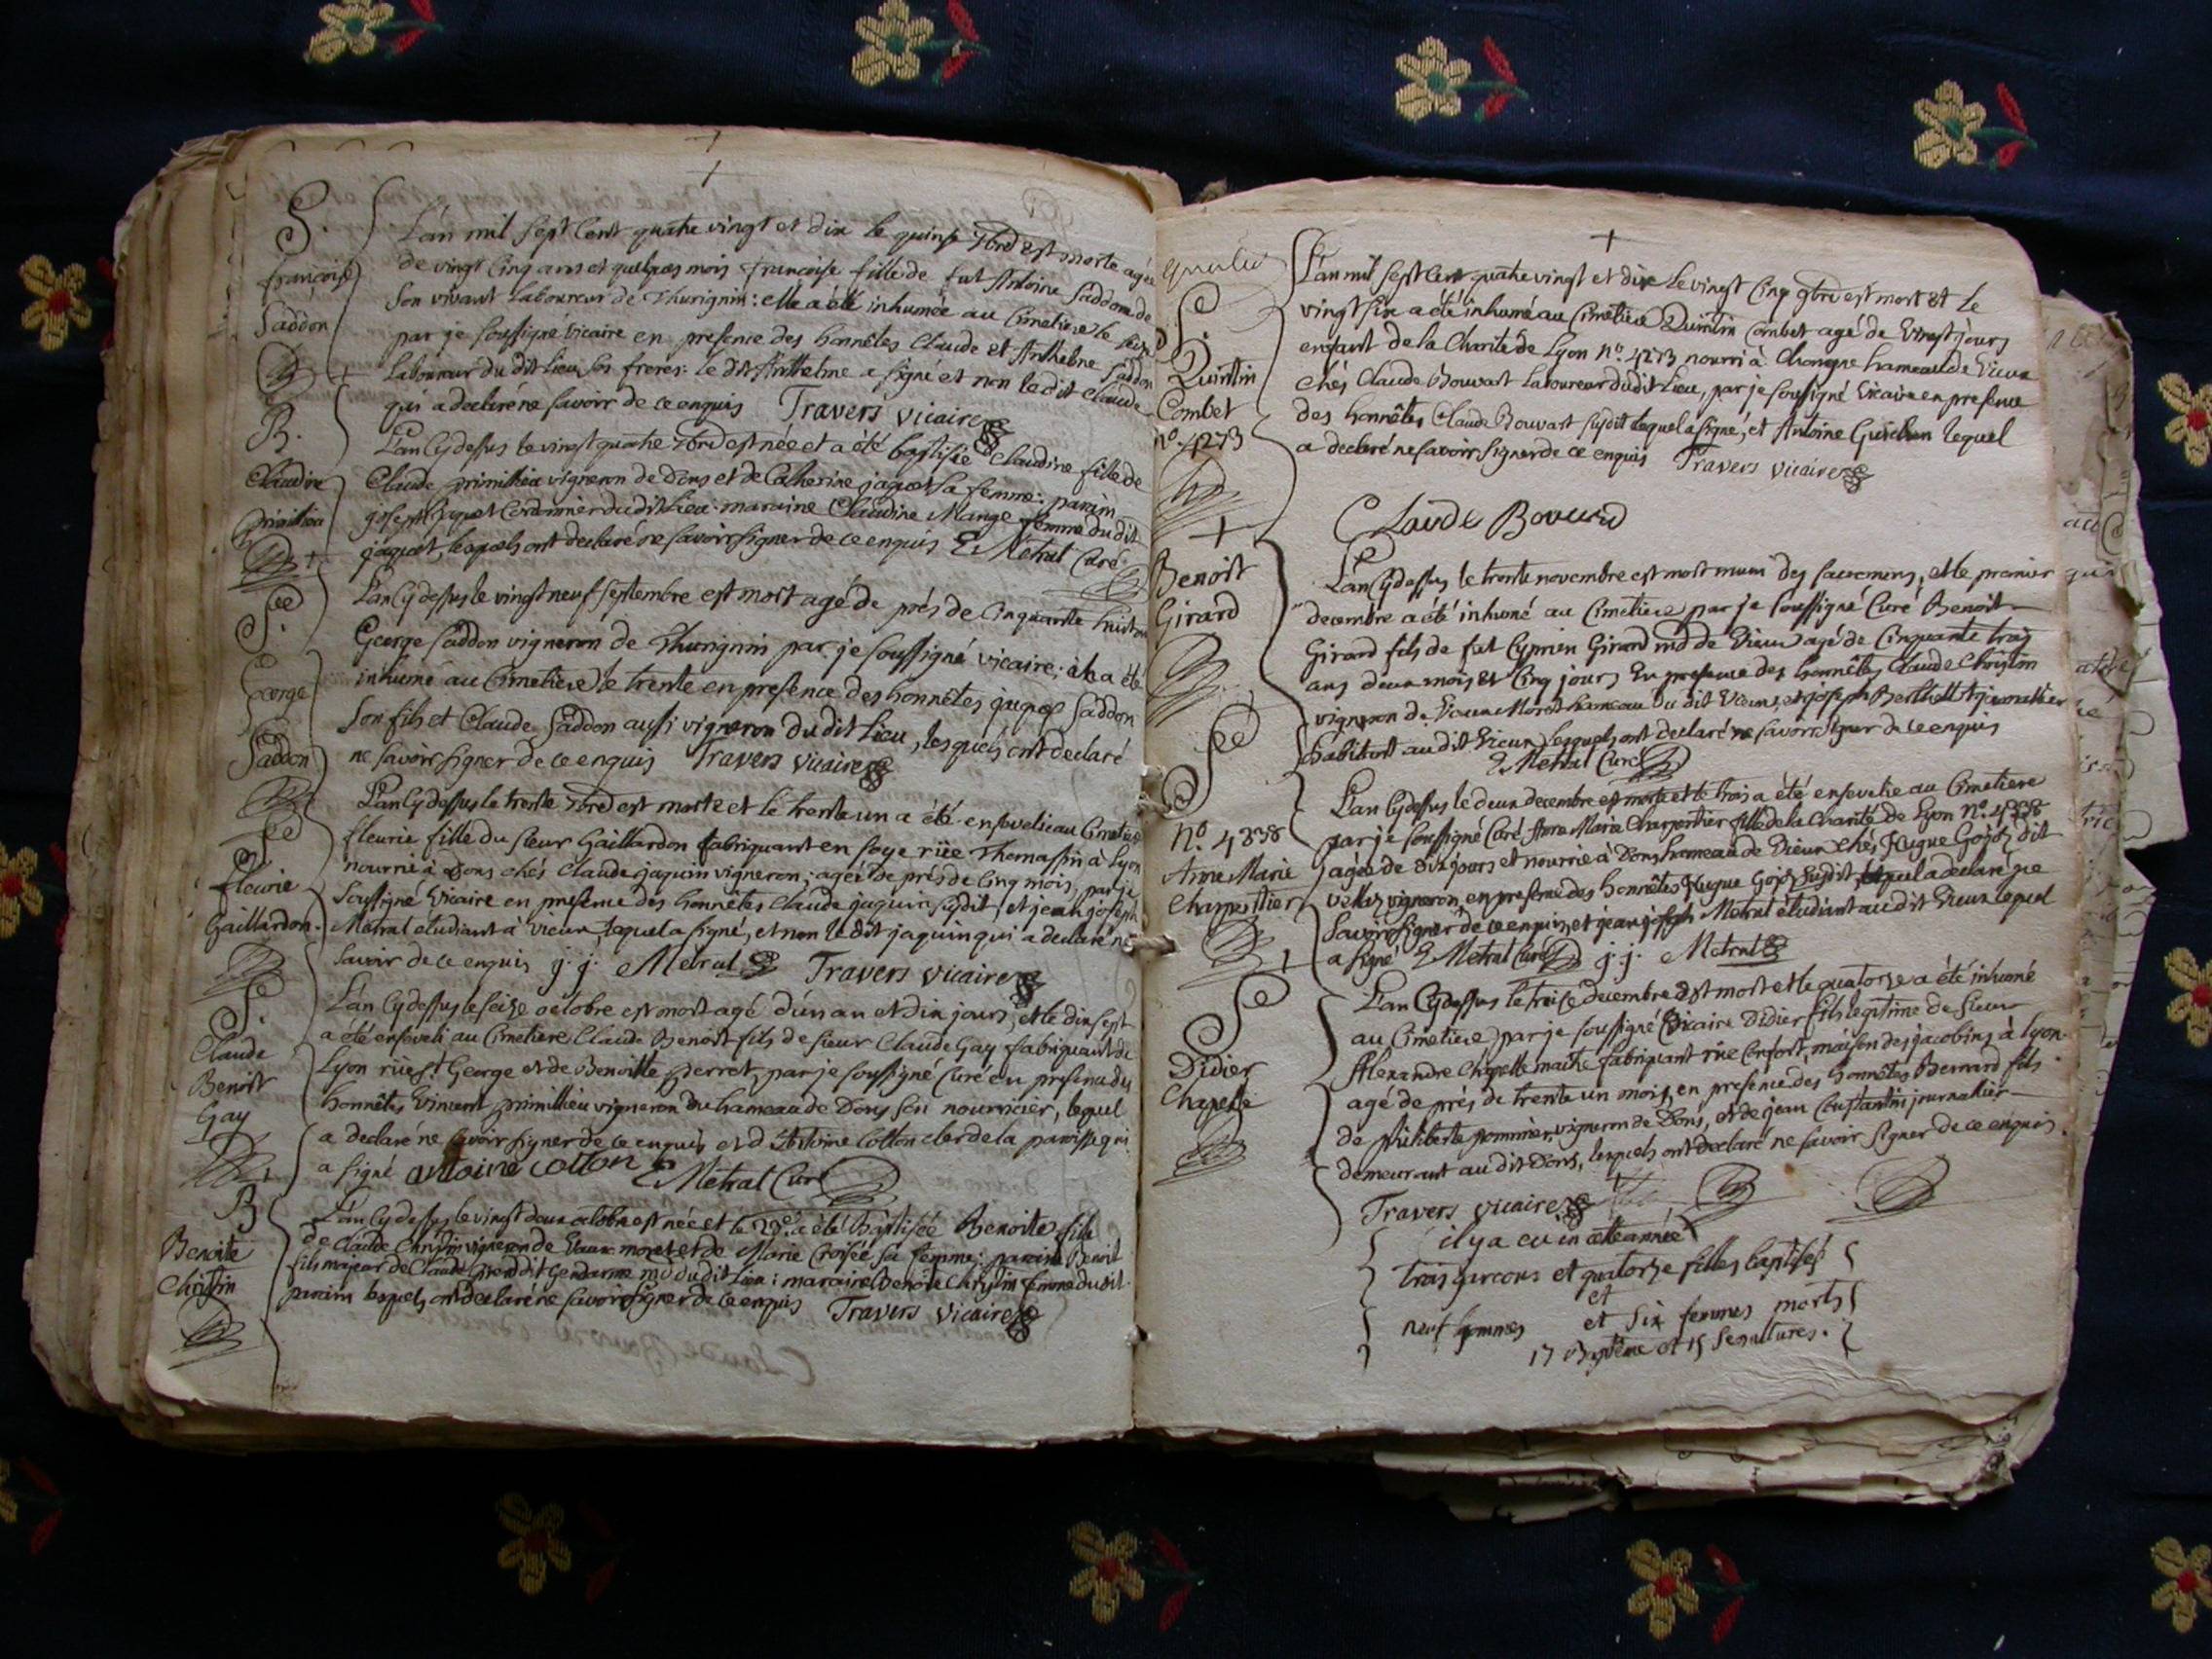 S.
françoise
Saddon
L'an mil sept cent quatre vingt et dix le quinze 7bre est morte agée
de vingt cinq ans et quelques mois françoise fille de fut Antoine Saddon de
son vivant laboureur de Thurignin: elle a été inhumée au Cimetiere le seize
par je soussigné vicaire en presence des honnêtes Claude et Anthelme Saddon
laboureur du dit lieu ses freres: le dit Anthelme a signé et non le dit Claude
qui a declaré ne savoir de ce enquis Travers vicaire
B.
Claudine
primillieu
L'an Cydessus le vingt quatre 7bre est née et a été baptisée Claudine fille de
Claude primillieu vigneron de Dons et de Catherine jaquet sa femme: parain
joseph jaquet Cordonnier du dit lieu: maraine Claudine Mange femme du dit
jaquet, lesquels ont declaré ne savoir signer de ce enquis Metral Curé
Sre
George
Saddon
L'an Cydessus le vingt neuf septembre est mort agé de prés de Cinquante huit ans
George Saddon vigneron de Thurignin par je soussigné vicaire; il a été
inhumé au Cimetiere le trente en presence des honnêtes jaques Saddon
son fils et Claude Saddon aussi vigneron du dit lieu, lesquels ont declaré
ne savoir signer de ce enquis Travers vicaire
Sre
fleurie
Gaillardon
L'an Cydessus le trente 7bre est morte et le trente un a été ensevelie au Cimetiere
fleurie fille du sieur Gaillardon fabriquant en soye rüe Thomassin à Lyon
nourrie à Dons chés Claude jaquin vigneron; agée de prés de Cinq mois, par je
soussigné vicaire en presence des honnêtes Claude jaquin susdit, et jean joseph
Metral étudiant à vieux, lequel a signé, et non le dit jaquin qui a declaré ne
savoir de ce enquis j. j. Metral Travers vicaire
Sre
Claude
Benoit
Gay
L'an Cydessus le seize octobre est mort agé d'un an et dix jours, et le dix sept
a été enseveli au Cimetiere Claude Benoit fils de sieur Claude Gay fabriquant de
Lyon rüe St George et de Benoitte perret, par je soussigné Curé en presence des
honnêtes Vincent primillieu vigneron du hameau de Dons son nourricier, lequel
a declaré ne savoir signer de ce enquis, et d'Antoine Cotton clerc de la paroisse qui
a signé antoine cotton Metral Curé
B
Benoite
Christin
L'an Cydessus le vingt deux octobre est née et le 23e a été baptisée Benoite fille
de Claude Christin vigneron de Vaux moret et de Marie Croisée sa femme: parain Benoit
fils majeur de Claude Girerd dit Gendarme md du dit lieu: maraine Benoite Christin femme du dit
parain lesquels ont declaré ne savoir signer de ce enquis Travers vicaire
Sre
Quintin
Combet
n°. 4273
L'an mil sept cent quatre vingt et dix le vingt Cinq 9bre est mort et le
vingt six a été inhumé au Cimetiere Quintin Combet agé de vingt jours
enfant de la Charité de Lyon n°. 4273 nourri à Chongne hameau de vieux
chés Claude Bouvart laboureur du dit lieu, par je soussigné vicaire en presence
des honnêtes Claude Bouvart susdit lequel a signé, et Antoine Guichon lequel
a declaré ne savoir signer de ce enquis Travers vicaire
Claude Bovard
Benoit
Girard
L'an Cydessus le trente novembre est mort muni des sacremens, et le premier
decembre a été inhumé au Cimetiere par je soussigné Curé Benoit
Girard fils de fut Cyprien Girard md de vieux agé de Cinquante trois
ans deux mois et Cinq jours en presence des honnêtes Claude Christin
vigneron de Vaux Moret hameau du dit vieux, et joseph Berthelet journallier
habitant au dit vieux, lesquels ont declaré ne savoir signer de ce enquis
Metral Curé
Sre
n°. 4838
Anne Marie
Charpentier
L'an Cydessus le deux decembre est morte et le trois a été ensevelie au Cimetiere
par je soussigné Curé, Anne Marie Charpentier fille de la Charité de Lyon n°. 4838
agée de dix jours et nourrie à Dons hameau de vieux chés Hugue Gojoz dit
vellaz vigneron, en presence des honnêtes Hugue Gojoz susdit, lequel a declaré ne
savoir signer de ce enquis, et jean joseph Metral étudiant au dit vieux lequel
a signé Metral Curé j. j. Metral
Sre
Didier
Chapelle
L'an Cydessus le treize decembre est mort et le quatorze a été inhumé
au Cimetiere par je soussigné vicaire Didier fils legitime de sieur
Alexandre Chapelle maitre fabriquant rüe Confort, maison des jacobins, à Lyon
agé de prés de trente un mois, en presence des honnêtes Bernard fils
de philiberte pommier, vigneron de Dons, et de jean Constantin journalier
demeurant au dit Dons, lesquels ont declaré ne savoir signer de ce enquis.
Travers vicaire
il y a eu en cette année
trois garcons et quatorze filles baptisés
et
neuf hommes et six femmes morts
17 Baptême et 15 Sepultures.